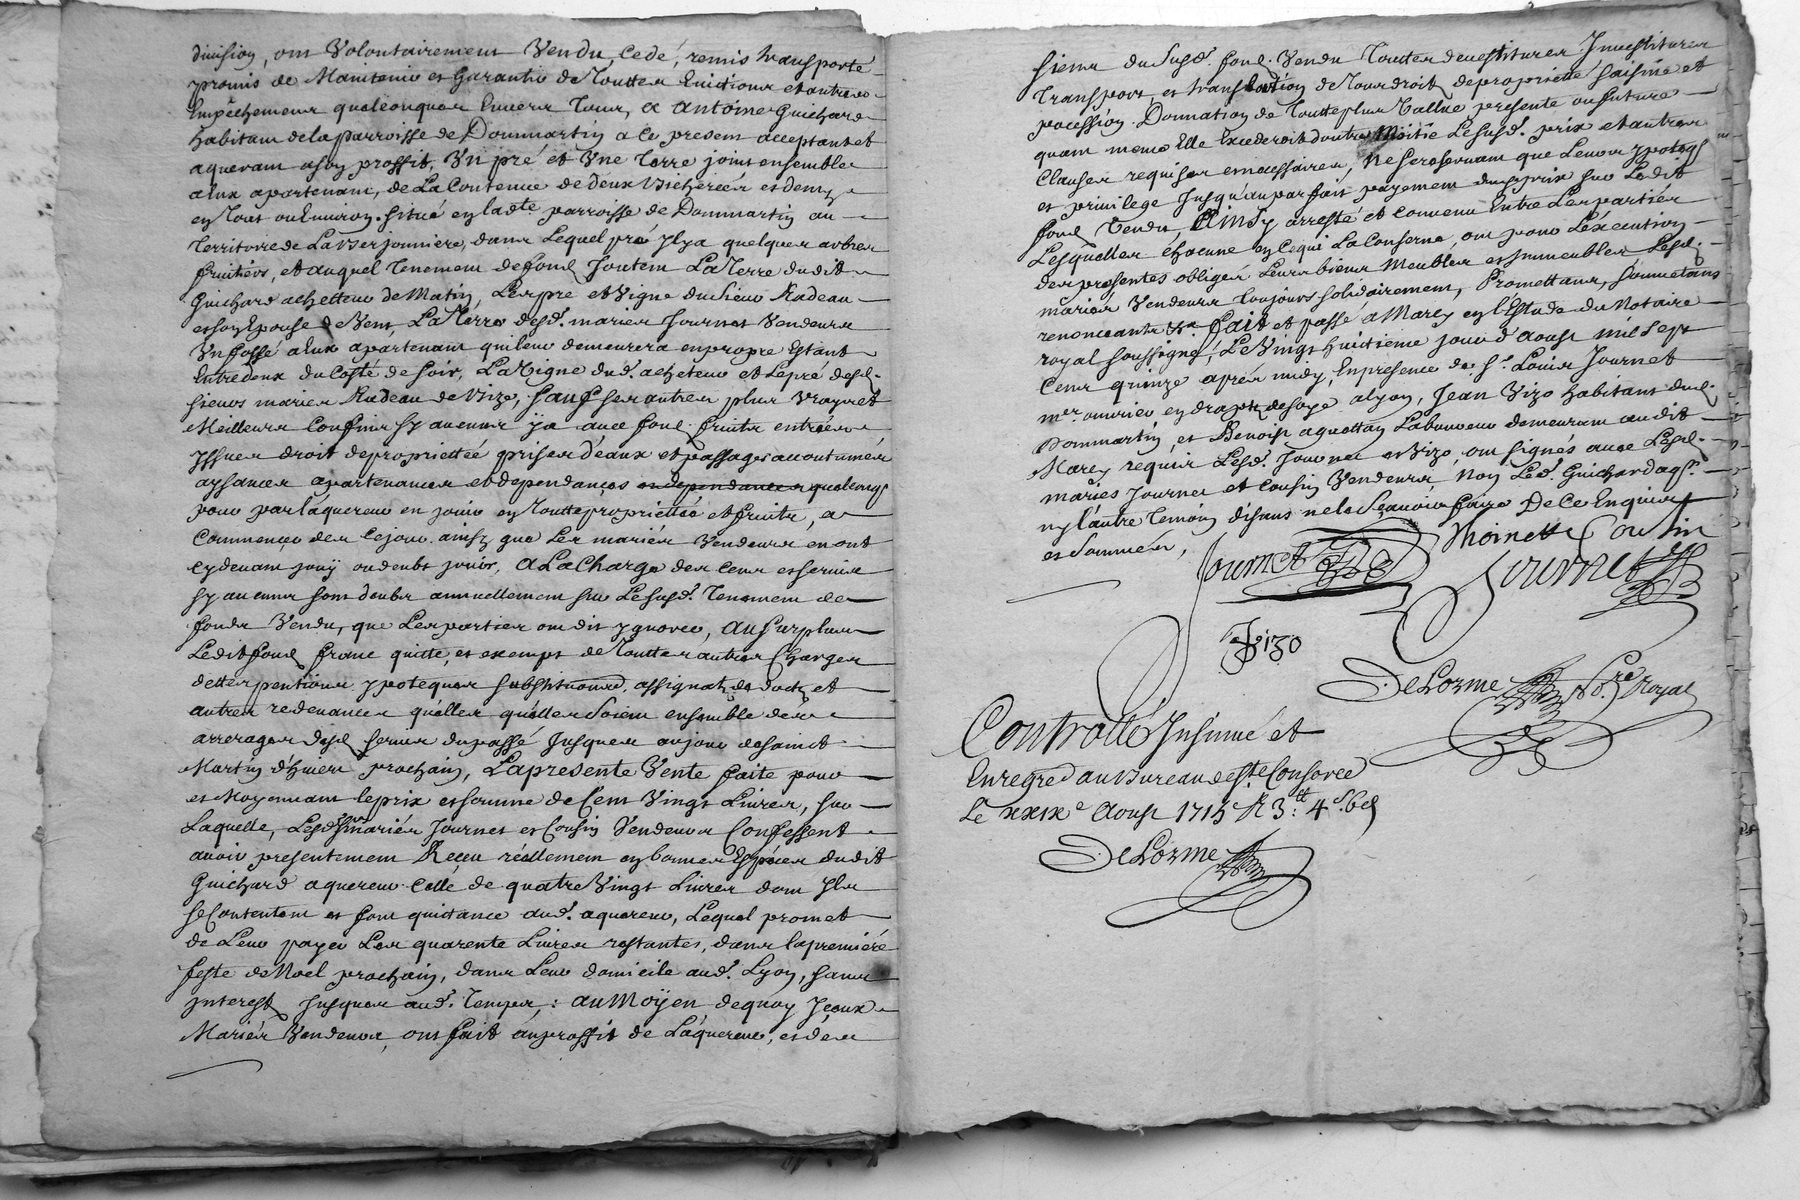 division, ont Volontairement Vendu, Cedé, remis transporté
promis de Maintenir et Garantir de Touttes Evictions et autres
Empêchemens qualconques Envers Tous, a Antoine Guichard
habitant de la parroisse de Dommartin a Ce present acceptant et
aquerant a son proffit, Un pré et Une Terre joints ensemble
a Eux apartenant, de La Contenue de deux bicherées et demy
en Tout ou Environ. Situé en lad.te parroisse de Dommartin au
Territoire de La Verjonniere, dans Lequel pré Jl y a quelques arbres
fruitiers, et auquel Tenement de fond Joutent La Terre dudit
Guichard achetteur de Matin, Les pré et Vigne du Sieur Radeau
et son Epouse de Vent, La Terre desd. mariés Journet Vendeurs
Un fossé a Eux apartenant qui leur demeurera en propre Estant
Entredeux du Costé de Soir, La Vigne dud. acheteur et Le pré desd.
sieurs mariés Radeau de Bize, Sauf ses autres plus Vrays et
Meilleurs Confins sy aucuns y a avec fond fruits entrées
Yssues droit de proprietteé prises d'eaux et passages accoutumés
aysances apartenances et dependances independances qualconqs
pour par l'aquereur en jouir en Toutte proprietteé et fruits, a
Commencer des Ce jour ainsy que Les mariés Vendeurs en ont
Cy devant jouy ou deubt jouir, A La Charge des Cens et servis
sy aucuns sont deubs annuellement sur Le susd. Tenement de
fonds Vendu, que Les parties ont dit ygnorer, Au Surplus
Ledit fond franc quitte, et exempt de Touttes autres Charges
dettes pentions ypoteques substitutions, assignats de dots et
autres redevances quelles quelles Soient ensemble des
arrerages desd. servis du passé Jusques au jour de saint
Martin d'hiver prochain, La presente Vente faite pour
et Moyennant le prix et somme de Cent Vingt Livres, sur
Laquelle, Lesd. mariés Journet et Cousin Vendeurs Confessent
avoir presentement Receu réellement en bonnes Espéces dudit
Guichard aquereur Celle de quatre Vingt Livres dont Jls
se Contentent et font quictance aud. aquereur, Lequel promet
de Leur payer Les quarente Livres restantes, dans la premiére
feste de Noel prochain, dans Leur domicile aud. Lyon, sans
jnterest Jusques aud. Temps; Au Moÿen de quoy Jceux
Mariés Vendeurs, ont fait au proffit de L'aquereur, et des
siens du susd. fond Vendu Touttes devestitures Jnvestitures
Transport, et translation de Tous droit de proprietté saisine et
pocession Donnation de Toutte plus Vallue presente ou future
quant meme Elle Excederoit d'outre Moitié Le susd. prix et autres
Clauses requises et necessaires, Ne se reservant que Leurs ypoteqs
et privilege Jusqu'au parfait payement dud. prix sur Ledit
fond Vendu, Ainsy arresté et Convenu Entre Les parties
Lesquelles chacune en Ce qui La Conserne, ont pour L'éxecution
des presentes obligés Leurs biens Meubles et Jmmeubles Lesd.
mariés Vendeurs Toujours solidairement, Promettans, Soumetans
renonceants &a. fait et passé a Marcy en L'Estude du Notaire
royal soussigné, Le Vingt huitieme jour d'aoust mil sept
Cens quinze aprés midy, En presence de S.r Louis Journet
m.er ouvrier en draps de soye a lyon, Jean Bizo habitant dud.
Dommartin, et Benoist aquottan Laboureur demeurant audit
Marcy requis Lesd. Journet et Bizo, ont signés avec Lesd.
mariés Journet et Cousin Vendeurs Non Led. Guichard aqr.
ny L'autre Temoin disans ne le Sçavoir faire De Ce Enquis
et Sommés,
Thoinette Coussin
Journet
Journet
J Bizo
DeLorme No.re Royal
Controllé Jnsinué et
Enregré au bureau de S.te Consorce
Le xxixe Aoust 1715 R 3.tt 4.s 6d
DeLorme